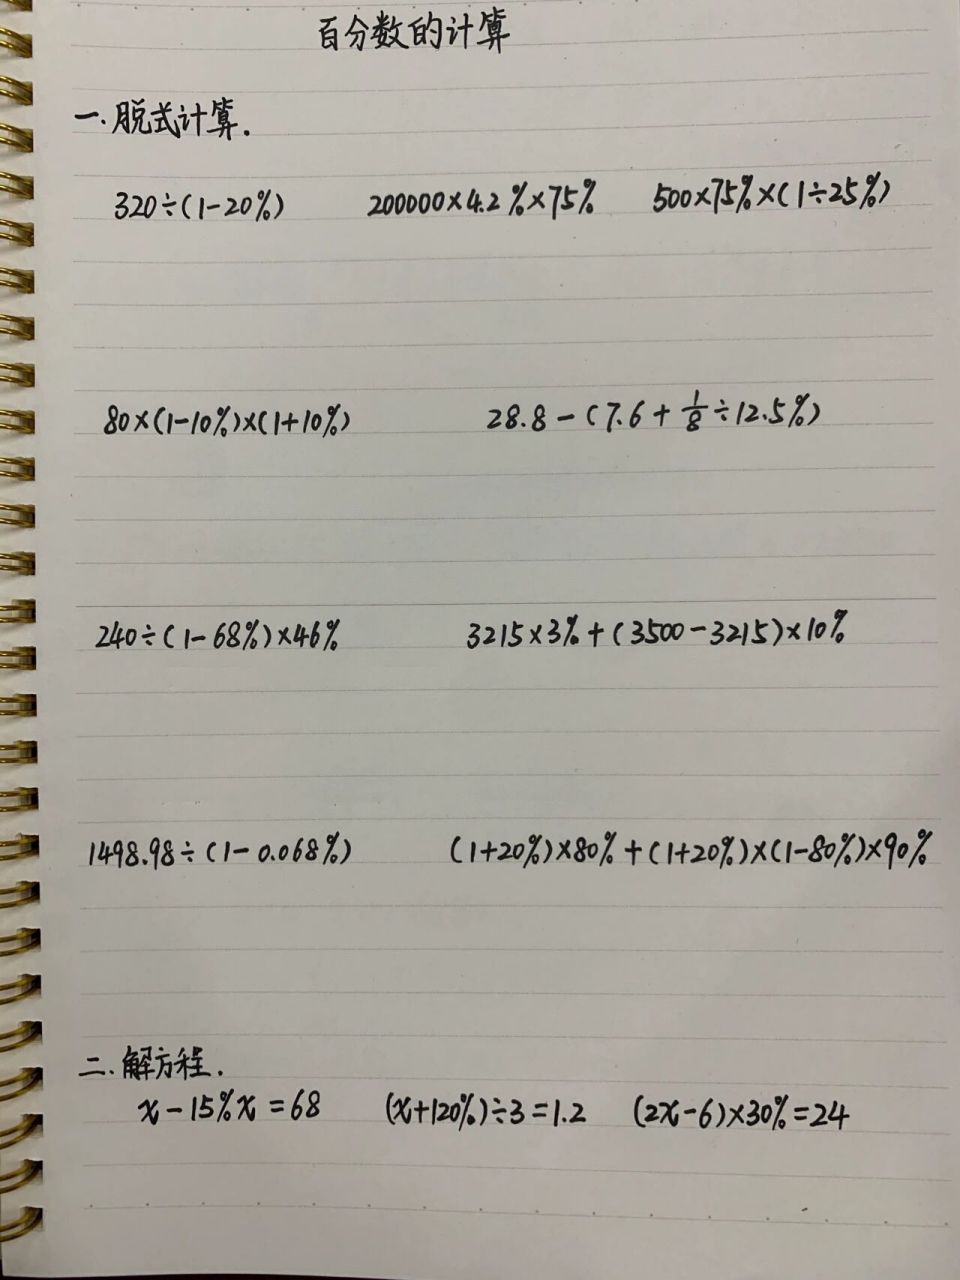 百分数的计算
一.脱式计算.
320÷(1-20%) 200000×4.2%×75% 500×75%×(1÷25%)
80×(1-10%)×(1+10%) 28.8-(7.6+1/8÷12.5%)
240÷(1-68%)×46% 3215×3%+(3500-3215)×10%
1498.98÷(1-0.068%) (1+20%)×80%+(1+20%)×(1-80%)×90%
二.解方程.
x-15%x=68 (x+120%)÷3=1.2 (2x-6)×30%=24